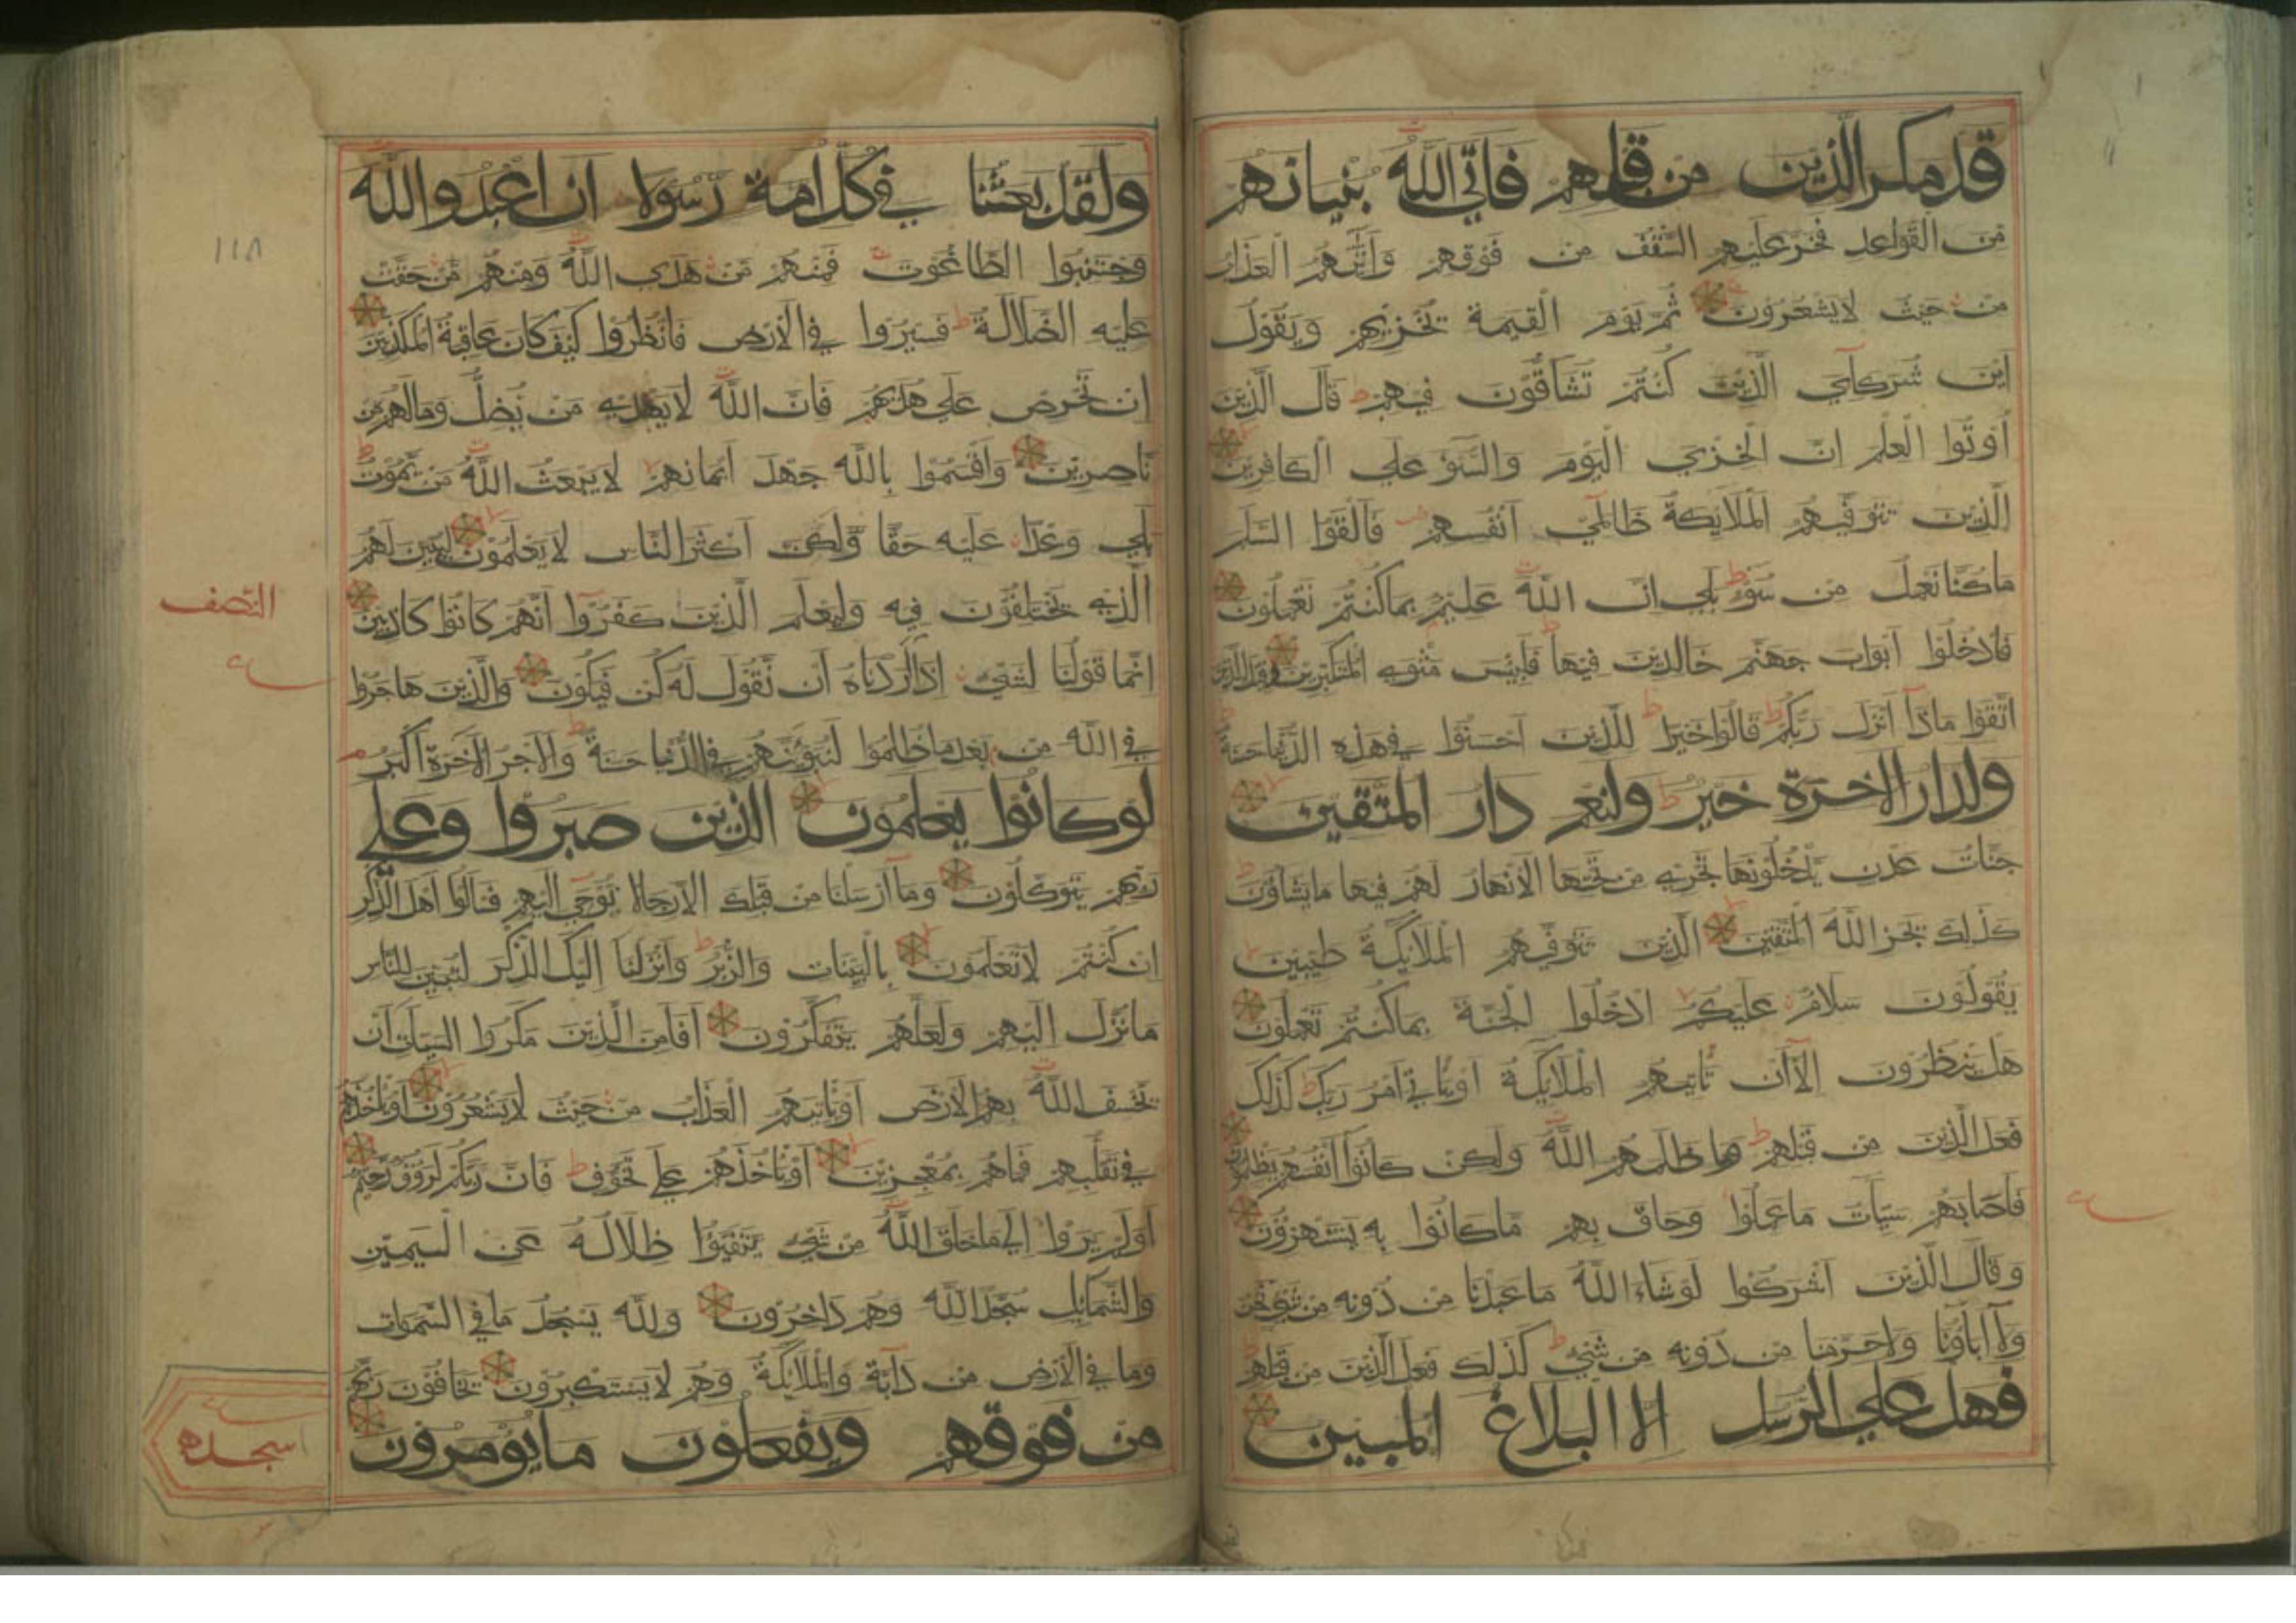 قد مكر الذين من قبلهم فاتي الله بنيانهم
من القواعد فخر عليهم السقف من فوقهم واتيهم العذاب
من حيث لا يشعرون ثم يوم القيمة يخزيهم ويقول
اين شركآءي الذين كنتم تشاقون فيهم قال الذين
اوتوا العلم ان الخزي اليوم والسوء علي الكافرين
الذين تتوفيهم الملايكة ظالمي انفسهم فالقوا السلم
ما كنا نعمل من سوء بلي ان الله عليم بما كنتم تعملون
فادخلوا ابواب جهنم خالدين فيها فلبيس مثوي المتكبرين وقيل للذين
اتقوا ماذا انزل ربكم قالوا خيرا للذين احسنوا في هذه الدنيا حسنة
ولدار الاخرة خير ولنعم دار المتقين
جنات عدن يدخلونها تجري من تحتها الانهار لهم فيها ما يشاؤن
كذلك يجز الله المتقين الذين تتوفيهم الملايكة طيبين
يقولون سلام عليكم ادخلوا الجنة بما كنتم تعملون
هل ينظرون الا ان تاتيهم الملايكة او ياتي امر ربك كذلك
فعل الذين من قبلهم وما ظلمهم الله ولكن كانوا انفسهم يظلمون
فاصابهم سيات ما عملوا وحاق بهم ما كانوا به يستهزؤن
وقال الذين اشركوا لو شاء الله ما عبدنا من دونه من شيء نحن
ولا اباؤنا ولا حرمنا من دونه من شيء كذلك فعل الذين من قبلهم
فهل علي الرسل الا البلاغ المبين
ولقد بعثنا في كل امة رسولا ان اعبدوا الله
وجتنبوا الطاغوت فمنهم من هدي الله ومنهم من حقت
عليه الضلالة فسيروا في الارض فانظروا كيف كان عاقبة المكذبين
ان تحرص علي هديهم فان الله لا يهدي من يضل وما لهم من
ناصرين واقسموا بالله جهد ايمانهم لا يبعث الله من يموت
بلي وعدا عليه حقا ولكن اكثر الناس لا يعلمون ليبين لهم
الذي يختلفون فيه وليعلم الذين كفروا انهم كانوا كاذبين
انما قولنا لشيء اذا اردناه ان نقول له كن فيكون والذين هاجروا
في الله من بعد ما ظلموا لنبوئنهم في الدنيا حسنة والاجر الاخرة اكبر
لو كانوا يعلمون الذين صبروا وعلي
ربهم يتوكلون وما ارسلنا من قبلك الا رجالا نوحي اليهم فسالوا اهل الذكر
ان كنتم لا تعلمون بالبينات والزبر وانزلنا اليك الذكر لتبين للناس
ما نزل اليهم ولعلهم يتفكرون افامن الذين مكروا السيات ان
يخسف الله بهم الارض او ياتيهم العذاب من حيث لا يشعرون او ياخذهم
في تقلبهم فما هم بمعجزين او ياخذهم علي تخوف فان ربكم لرؤف رحيم
اولم يروا الي ما خلق الله من شيء يتفيؤا ظلاله عن اليمين
والشمايل سجدا لله وهم داخرون ولله يسجد ما في السموات
وما في الارض من دابة والملايكة وهم لا يستكبرون يخافون ربهم
من فوقهم ويفعلون ما يومرون
١١٨
النصف
سجده